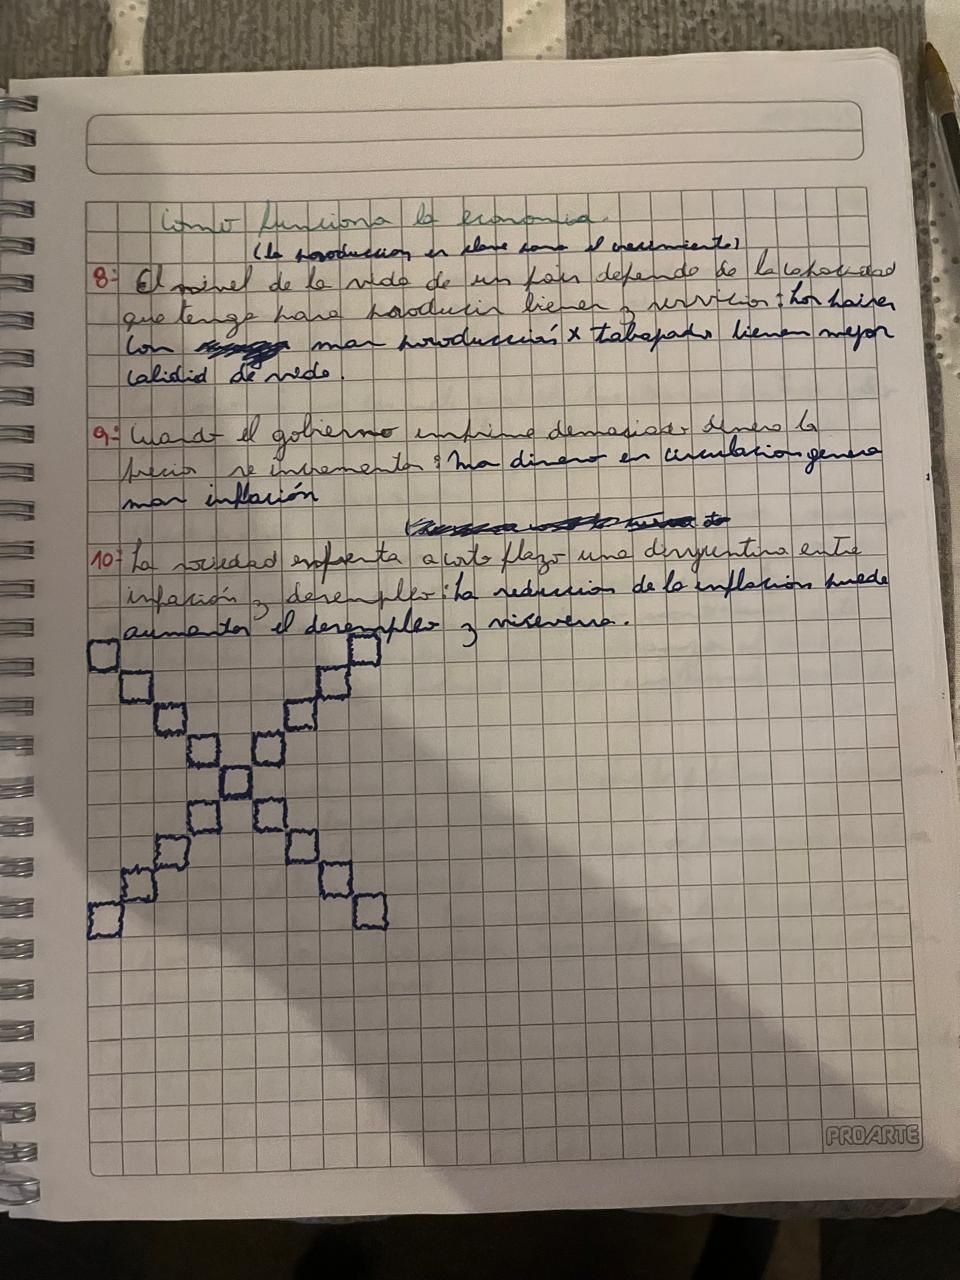 como funciona la economia.
(la produccion es clave para el crecimiento)
8- El nivel de la vida de un pais depende de la capacidad
que tenga para producir bienes y servicios: Los paises
con mas producción x trabajador tienen mejor
calidid de vida.
9- Cuando el gobierno imprime demasiado dinero la
precio se incrementa: Mas dinero en circulacion genera
mas inflación
10- La sociedad enfrenta a corto plazo una disyuntiva entre
inflación y desempleo: La reduccion de la inflación puede
aumentar el desempleo y viceversa.
PROARTE